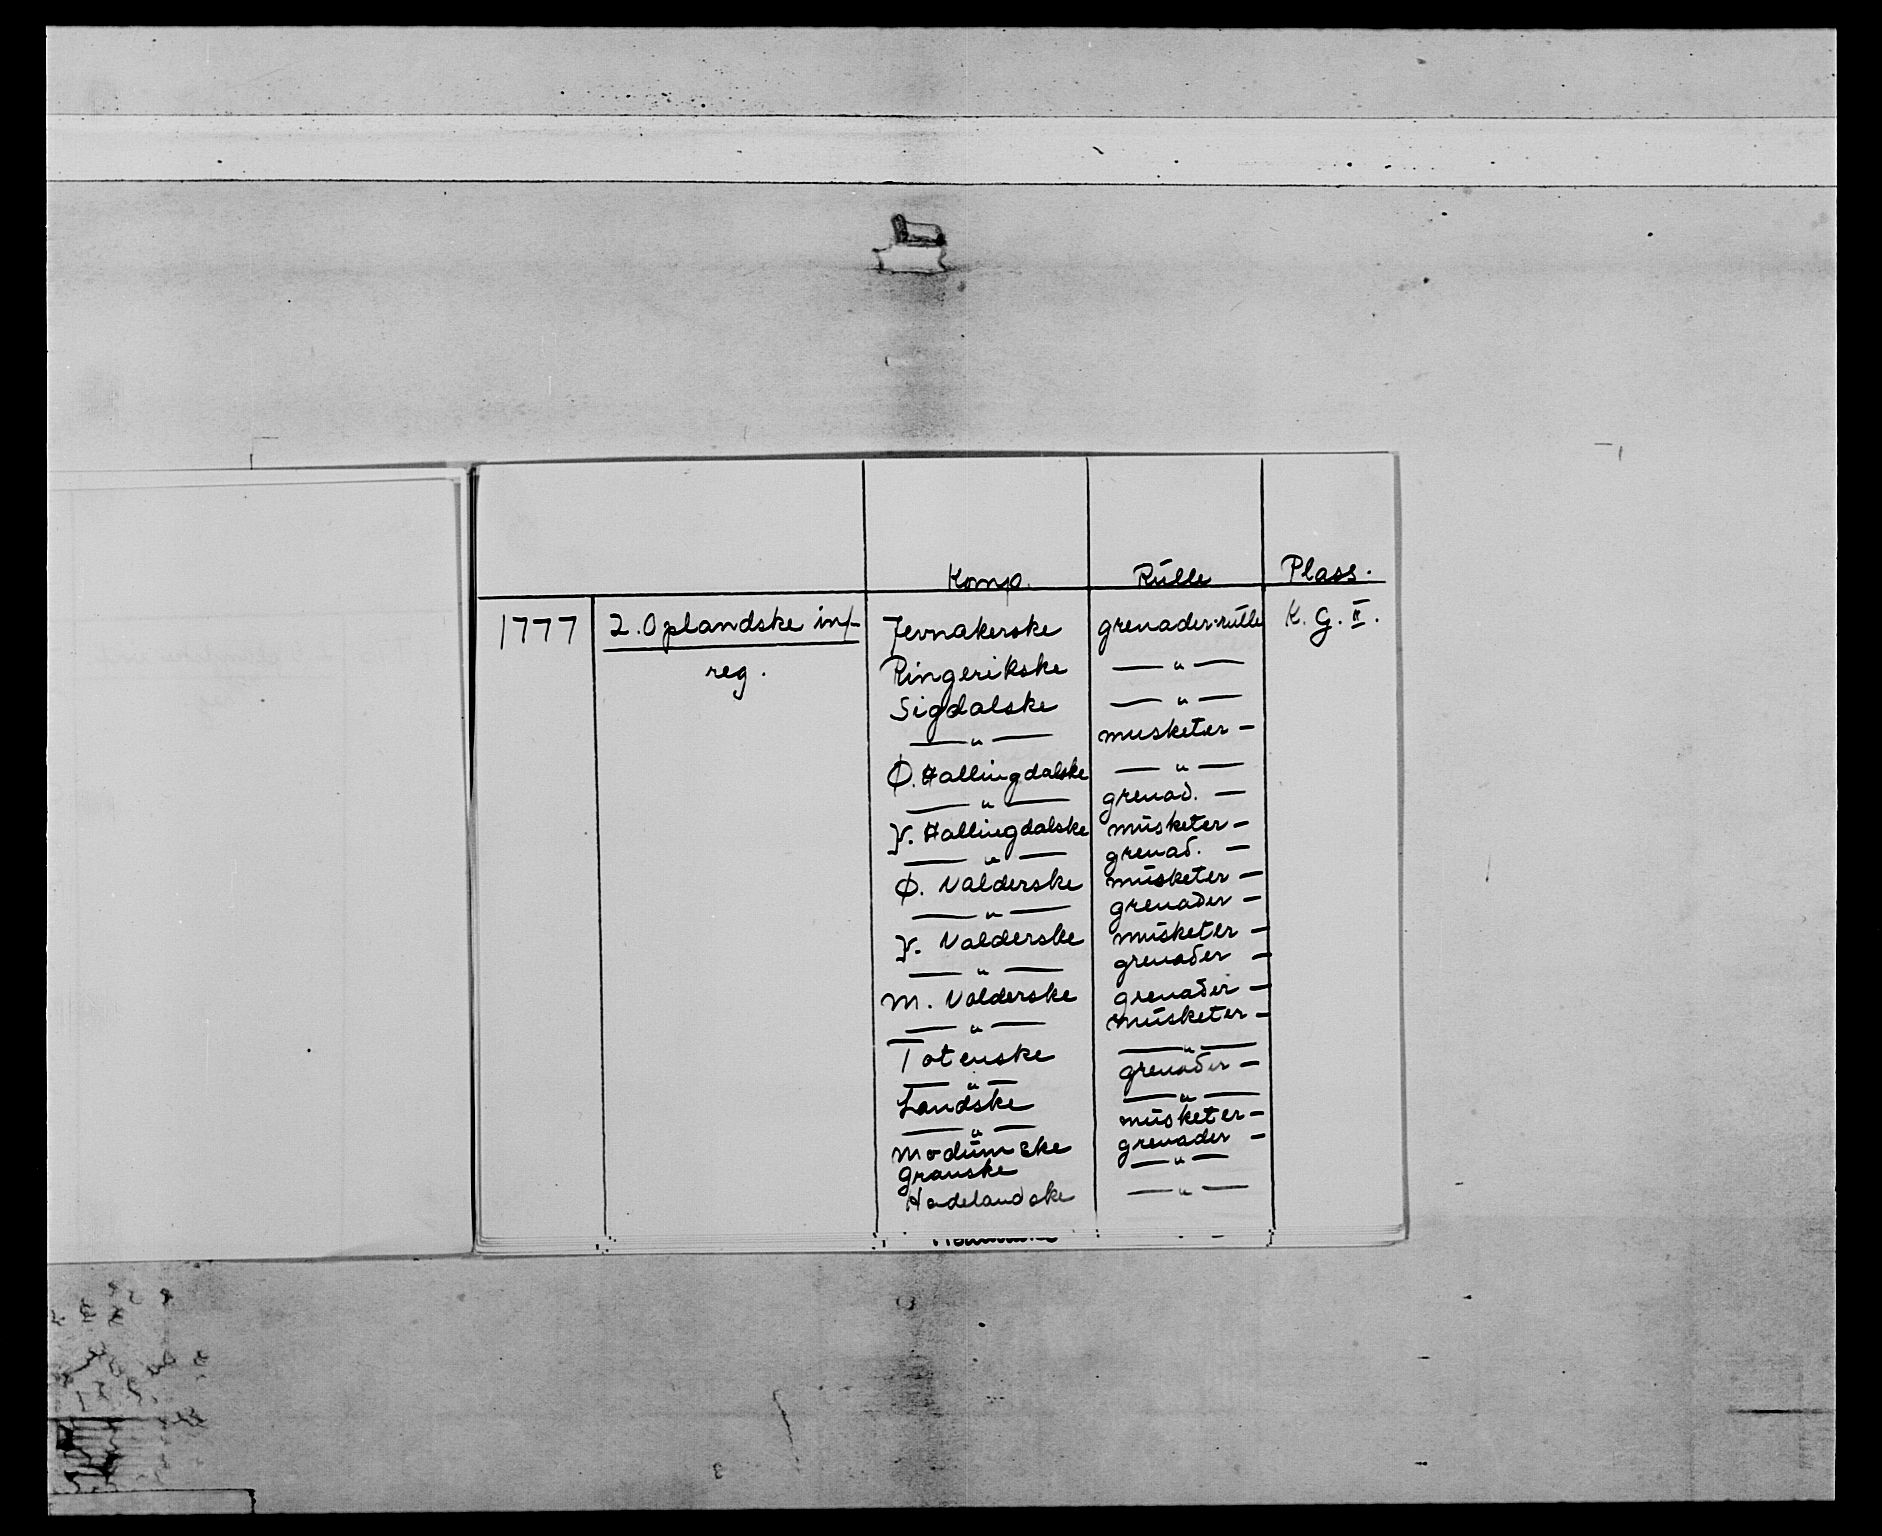 Komp. Rulle Plass.
1777 2. Oplandske inf- Jevnakerske grenader-rulle K. G. II.
reg. Ringerikske — " —
Sigdalske — " —
— " — musketer —
Ø. Hallingdalske — " —
— " — grenad. —
V. Hallingdalske musketer —
— " — grenad. —
Ø. Valderske musketer —
— " — grenader —
V. Valderske musketer —
— " — grenader —
M. Valderske grenader —
— " — musketer —
Totenske — " —
— " — grenader —
Landske — " —
— " — musketer —
Modumske grenader —
Granske — " —
Hadelandske — " —